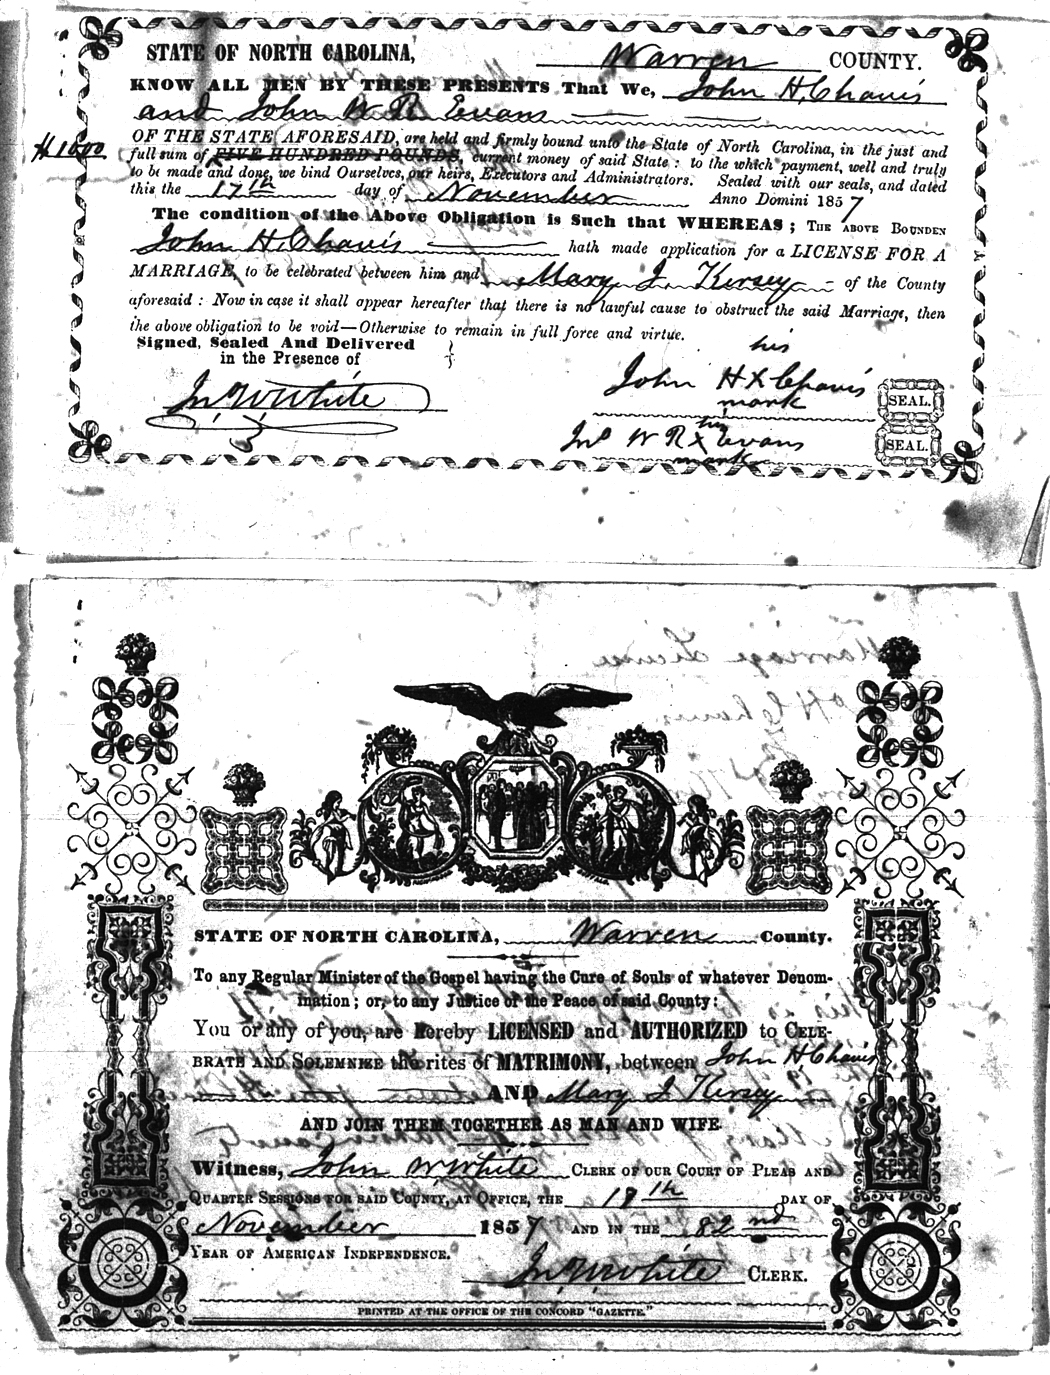 STATE OF NORTH CAROLINA, Warren COUNTY.
KNOW ALL MEN BY THESE PRESENTS That We, John H. Chavis
and John W. R. Evans
OF THE STATE AFORESAID, are held and firmly bound unto the State of North Carolina, in the just and
$1000 full sum of FIVE HUNDRED POUNDS, current money of said State : to the which payment, well and truly
to be made and done, we bind Ourselves, our heirs, Executors and Administrators. Sealed with our seals, and dated
this the 17th day of November Anno Domini 1857
The condition of the Above Obligation is Such that WHEREAS ; THE ABOVE BOUNDEN
John H. Chavis hath made application for a LICENSE FOR A
MARRIAGE, to be celebrated between him and Mary J. Kersey of the County
aforesaid : Now in case it shall appear hereafter that there is no lawful cause to obstruct the said Marriage, then
the above obligation to be void—Otherwise to remain in full force and virtue.
Signed, Sealed And Delivered
in the Presence of
his
John H X Chavis
mark
SEAL.
Jno W White
his
Jno W R X Evans
mark
SEAL.
Marriage License
H Chavis
STATE OF NORTH CAROLINA, Warren County.
To any Regular Minister of the Gospel having the Cure of Souls of whatever Denom-
ination ; or, to any Justice of the Peace of said County :
You or any of you, are Hereby LICENSED and AUTHORIZED to CELE-
BRATE AND SOLEMNIZE the rites of MATRIMONY, between John H. Chavis
AND Mary J Kersey
AND JOIN THEM TOGETHER AS MAN AND WIFE.
Witness, John W White CLERK OF OUR COURT OF PLEAS AND
QUARTER SESSIONS FOR SAID COUNTY, AT OFFICE, THE 17th DAY OF
November 1857 AND IN THE 82nd
YEAR OF AMERICAN INDEPENDENCE.
Jno W White CLERK.
PRINTED AT THE OFFICE OF THE CONCORD "GAZETTE."